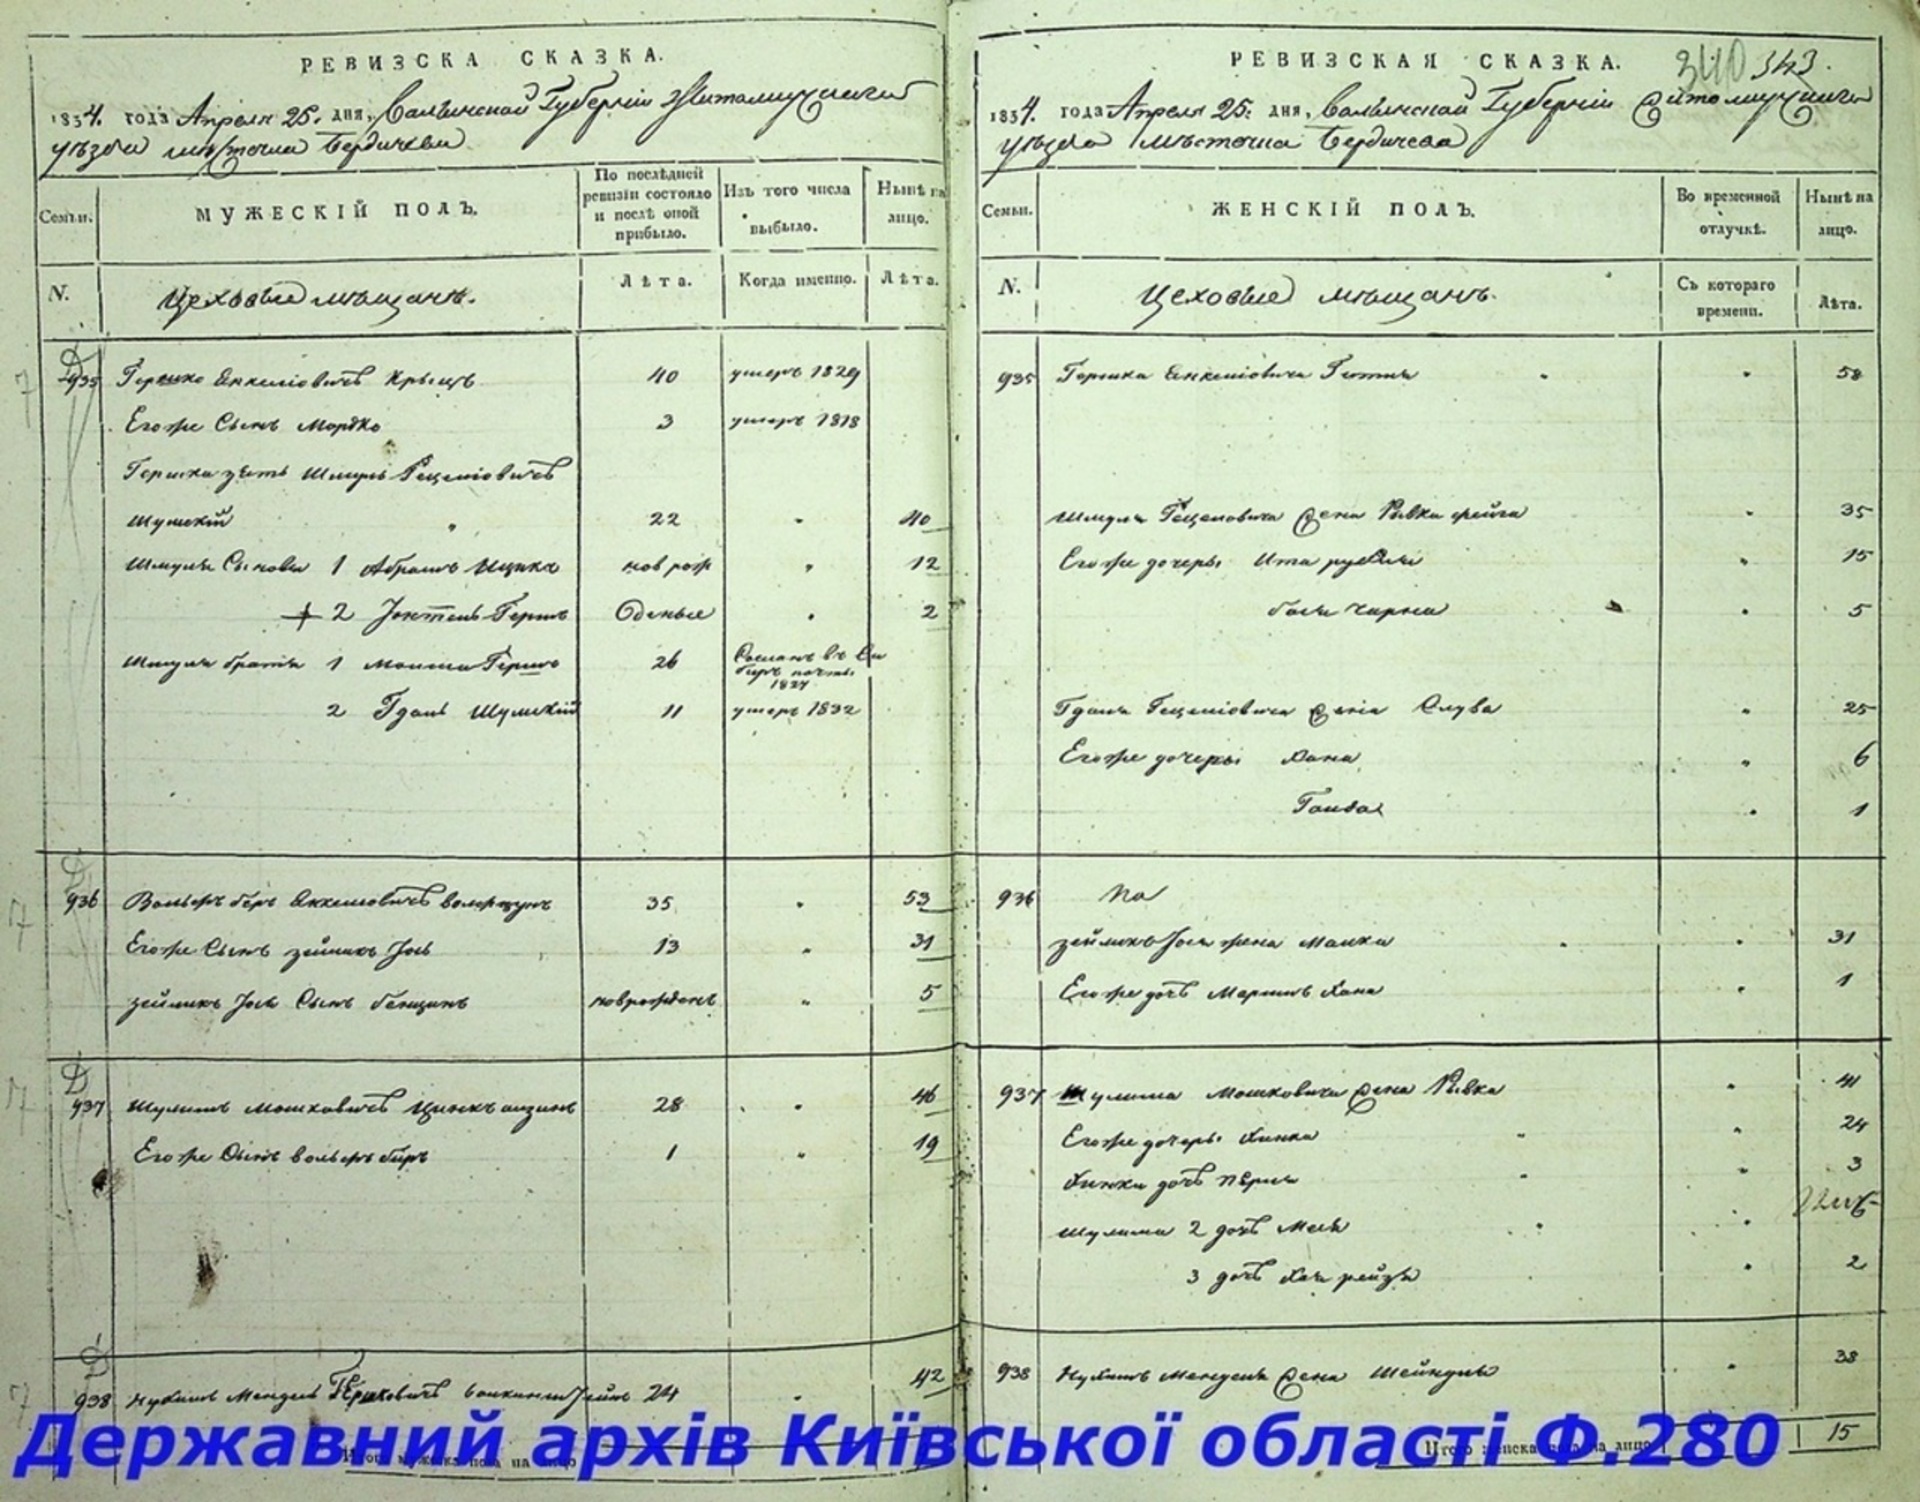 РЕВИЗСКА СКАЗКА.
1834. года Апреля 25. дня, Волынской Губернии Житомирского
уезда местечка Бердичева
Семьи.
МУЖЕСКІЙ ПОЛЪ.
По послѣдней ревизіи состояло и послѣ оной прибыло.
Изъ того числа выбыло.
Нынѣ на лицо.
N.
Цеховые мѣщанъ.
Лѣта.
Когда именно.
Лѣта.
935 Гершко Янкелiовичъ 40 умеръ 1829
Его же Сынъ Мордко 3 умеръ 1818
Гершка зять Шмуль
Шумскій 22 " 40
Шмуля Сыновья 1 Абрамъ Ицикъ нов рож " 12
2 Герш " 2
Шмуля братья 1 Мошка Гершъ 26 Сосланъ въ Сибирь 1827
2 Гдаль Шумскій 11 умеръ 1832
936 Вольфъ беръ Янкелiовичъ 35 " 53
Его же Сынъ зейликъ Іось 13 " 31
зейликъ Іося Сынъ бенционъ новорожденъ " 5
937 Шулимъ Мошковичъ 28 " 46
Его же Сынъ вольфъ беръ 1 " 19
938 Нухимъ Мендель Гершковичъ 24 " 42
Итого мужеска пола на лицо
РЕВИЗСКАЯ СКАЗКА.
340 343.
1834. года Апреля 25. дня, Волынской Губернии Житомирского
уезда местечка Бердичева
Семьи.
ЖЕНСКІЙ ПОЛЪ.
Во временной отлучкѣ.
Нынѣ на лицо.
N.
Цеховые мѣщанъ.
Съ котораго времени.
Лѣта.
935 Гершка Янкелiовича Гитля " 58
Шмуля жена Рывка фейга " 35
Его же дочеры Ита рухля " 15
бася чарна " 5
Гдаля жена Слува " 25
Его же дочеры Хана " 6
" 1
936 На
зейликъ Іося жена Малка " 31
Его же дочь Хана " 1
937 Шулима Мошковича жена Рывка " 41
Его же дочеры Хинка " 24
Хинки дочь Перля " 3
Шулима 2 дочь "
3 дочь Хая рейзя " 2
938 Нухимъ Менделя жена Шейндля " 38
Итого женска пола на лицо 15
Державний архів Київської області Ф.280